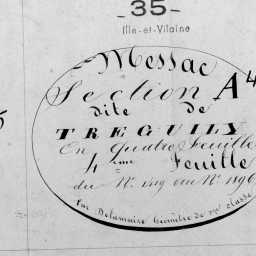 35
Ille-et-Vilaine
Messac
Section A4
dite de
TREGUILY
En Quatre Feuilles
4ème Feuille
du N°. au N° 1896
Par Delamaire Géomètre de 1ère classe